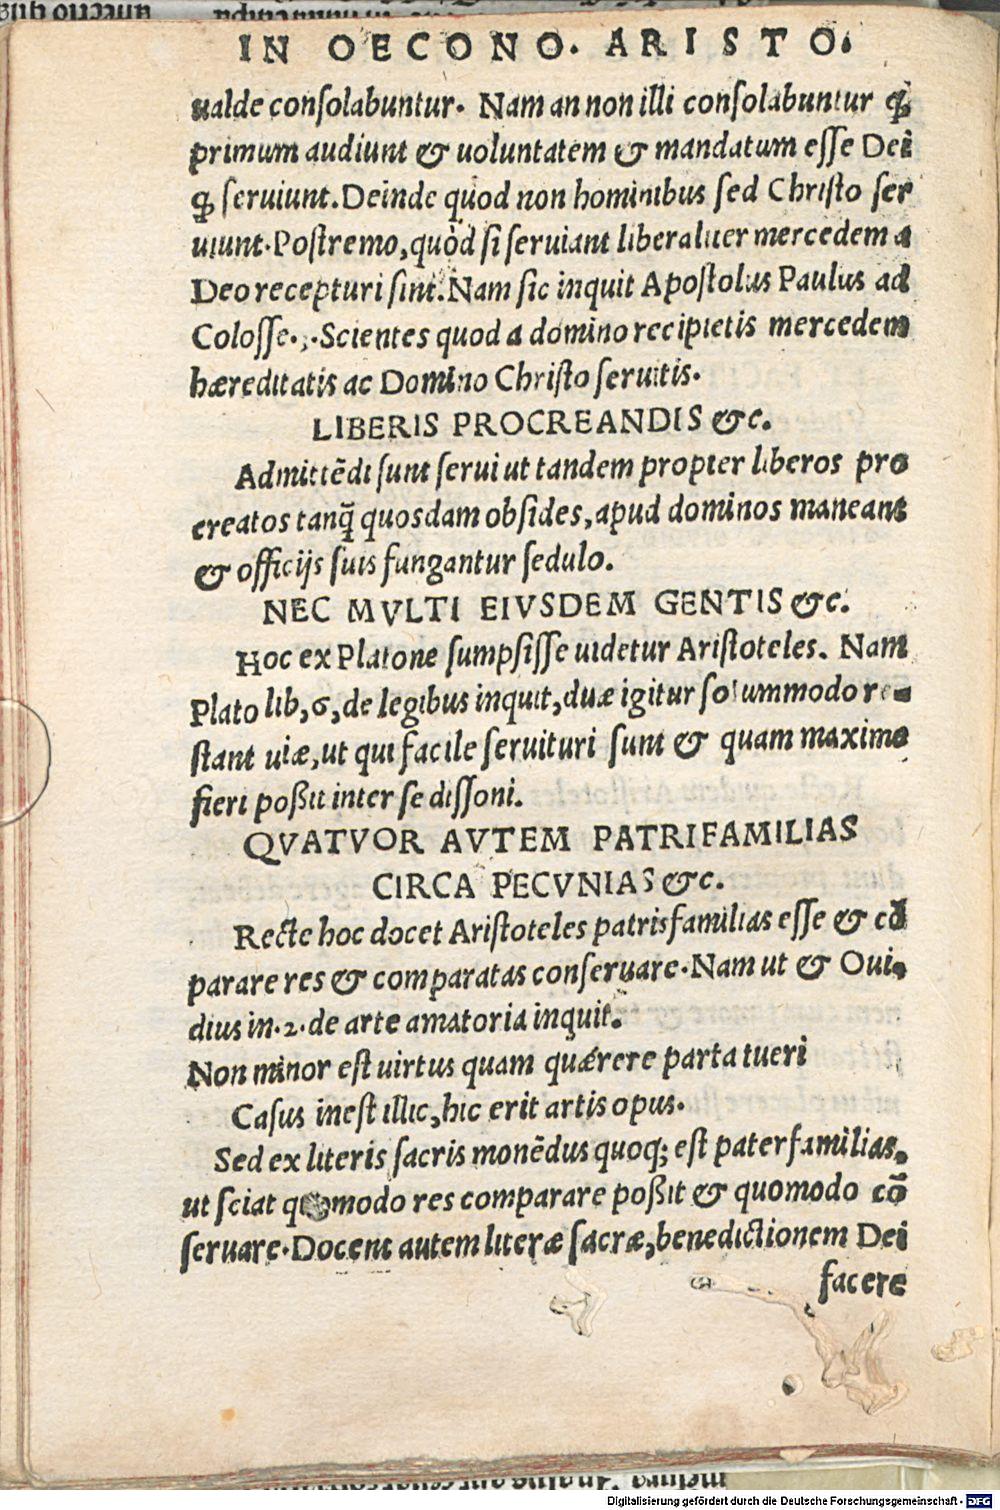 IN OECONO. ARISTO.
ualde conſolabuntur. Nam an non illi conſolabuntur ꝙ
primum audiunt & uoluntatem & mandatum eſſe Dei
ꝙ ſeruiunt. Deinde quòd non hominibus ſed Chriſto ſer
uiunt. Poſtremo, quòd ſi ſeruiant liberaliter mercedem a
Deo recepturi ſint. Nam ſic inquit Apoſtolus Paulus ad
Coloſſe. Scientes quod a domino recipietis mercedem
hæreditatis ac Domino Chriſto ſeruitis.
LIBERIS PROCREANDIS &c.
Admittẽdi ſunt ſerui ut tandem propter liberos pro
creatos tanq̃ quosdam obſides, apud dominos maneant
& officijs ſuis fungantur ſedulo.
NEC MVLTI EIVSDEM GENTIS &c.
Hoc ex Platone ſumpſiſſe uidetur Ariſtoteles. Nam
Plato lib, 6, de legibus inquit, duæ igitur solummodo re-
ſtant uiæ, ut qui facile ſeruituri ſunt & quam maxime
fieri poßit inter ſe diſſoni.
QVATVOR AVTEM PATRIFAMILIAS
CIRCA PECVNIAS &c.
Recte hoc docet Ariſtoteles patrisfamilias eſſe & cō
parare res & comparatas conſeruare. Nam ut & Oui-
dius in .2. de arte amatoria inquit.
Non minor eſt uirtus quam quærere parta tueri
Caſus ineſt illic, hic erit artis opus.
Sed ex literis ſacris monẽdus quoq; eſt paterfamilias,
ut ſciat quomodo res comparare poßit & quomodo cō
ſeruare. Docent autem literæ ſacræ, benedictionem Dei
facere
Digitalisierung gefördert durch die Deutsche Forschungsgemeinschaft - DFG